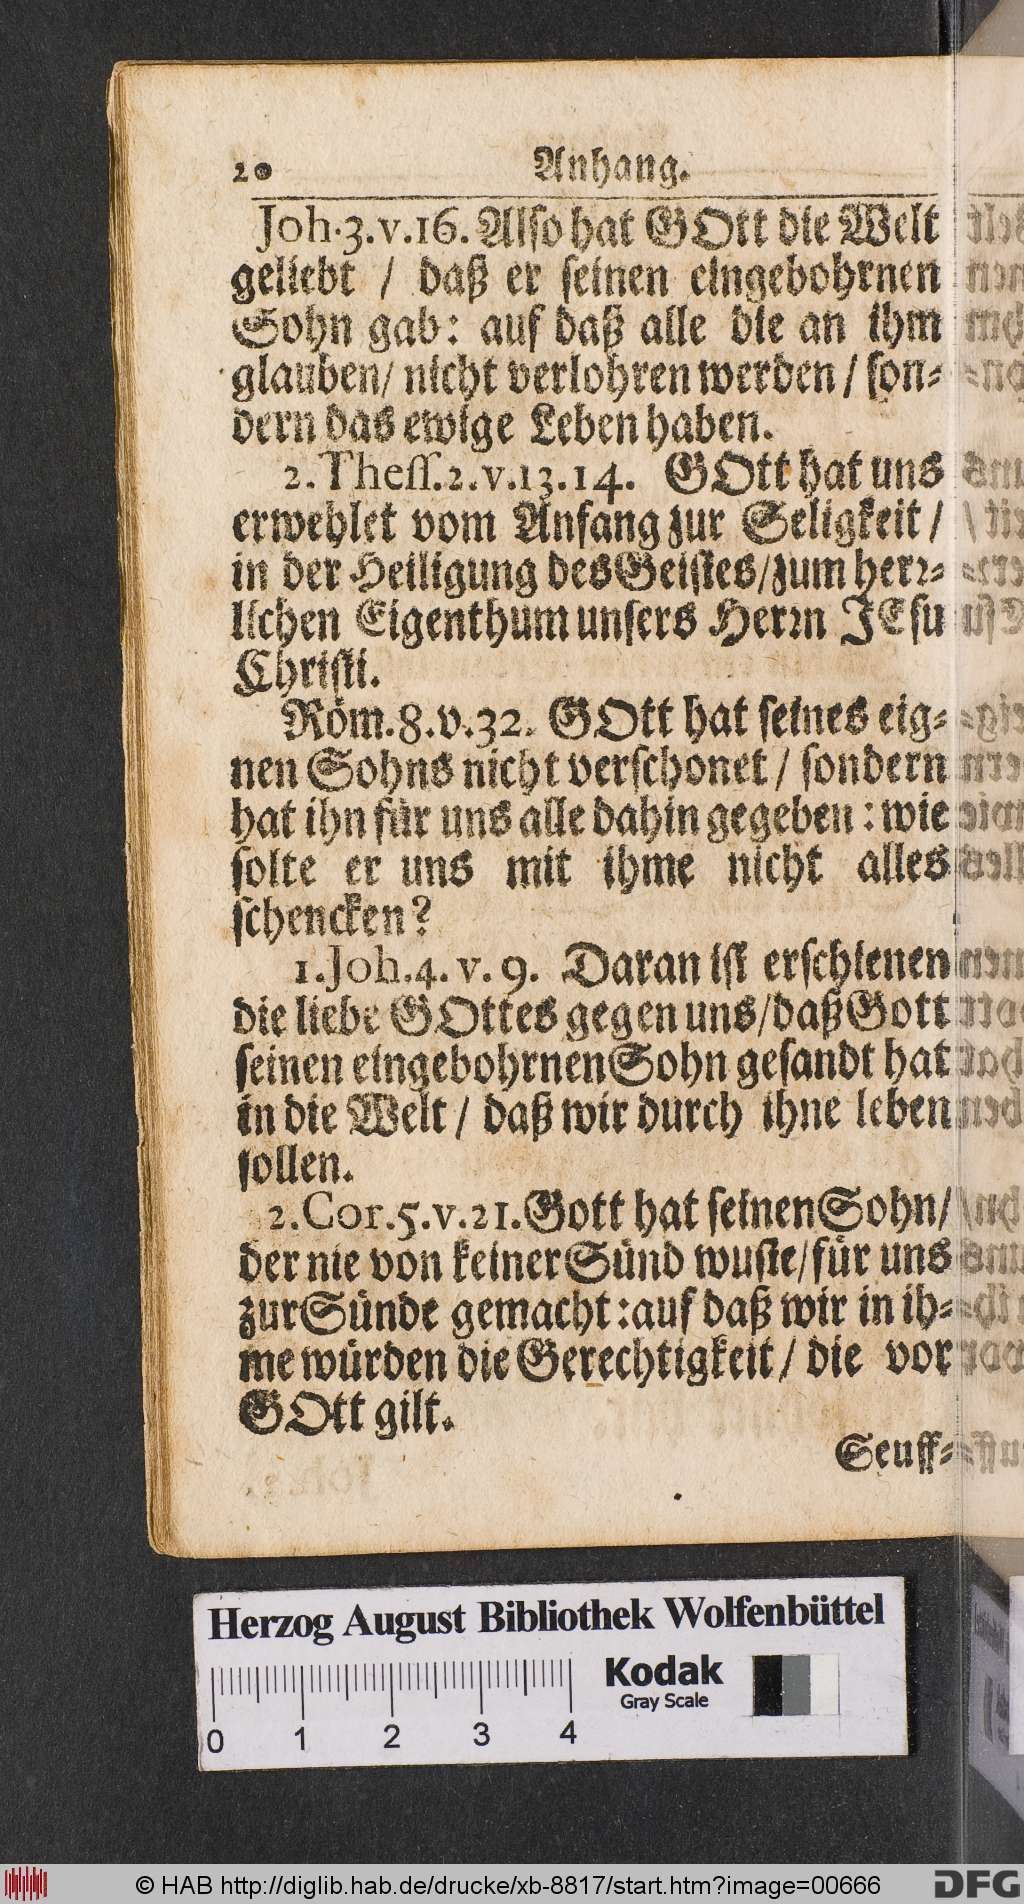 20 Anhang.
Joh. 3. v. 16. Also hat GOtt die Welt
geliebt / daß er seinen eingebohrnen
Sohn gab: auf daß alle die an ihm
glauben/ nicht verlohren werden / son-
dern das ewige Leben haben.
2. Thess. 2. v. 13. 14. GOtt hat uns
erwehlet vom Anfang zur Seligkeit /
in der Heiligung des Geistes/zum herr-
lichen Eigenthum unsers Herrn JEsu
Christi.
Röm. 8. v. 32. GOtt hat seines eig-
nen Sohns nicht verschonet / sondern
hat ihn für uns alle dahin gegeben: wie
solte er uns mit ihme nicht alles
schencken?
1. Joh. 4. v. 9. Daran ist erschienen
die liebe GOttes gegen uns/daß Gott
seinen eingebohrnen Sohn gesandt hat
in die Welt / daß wir durch ihne leben
sollen.
2. Cor. 5. v. 21. Gott hat seinen Sohn/
der nie von keiner Sünd wuste/für uns
zur Sünde gemacht: auf daß wir in ih-
me würden die Gerechtigkeit / die vor
GOtt gilt.
Seuff-
Herzog August Bibliothek Wolfenbüttel
Kodak
Gray Scale
0 1 2 3 4
© HAB http://diglib.hab.de/drucke/xb-8817/start.htm?image=00666
DFG